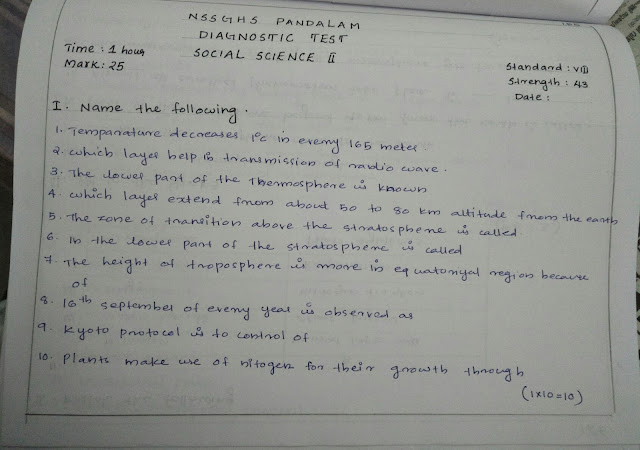 NSSGHS PANDALAM
DIAGNOSTIC TEST
Time : 1 hour
SOCIAL SCIENCE II
Mark : 25
Standard : VIII
Strength : 43
Date :
I. Name the following.
1. Temparature decreases 1°c in every 165 meter
2. which layer help is transmission of radio wave.
3. The lower part of the Thermosphere is known
4. which layer extend from about 50 to 80 km altitude from the earth
5. The zone of transition above the stratosphere is called
6. In the lower part of the stratosphere is called
7. The height of troposphere is more in equatoriyal region because
of
8. 16th september of every year is observed as
9. Kyoto protocol is to control of
10. plants make use of nitogen for their growth through
(1x10=10)